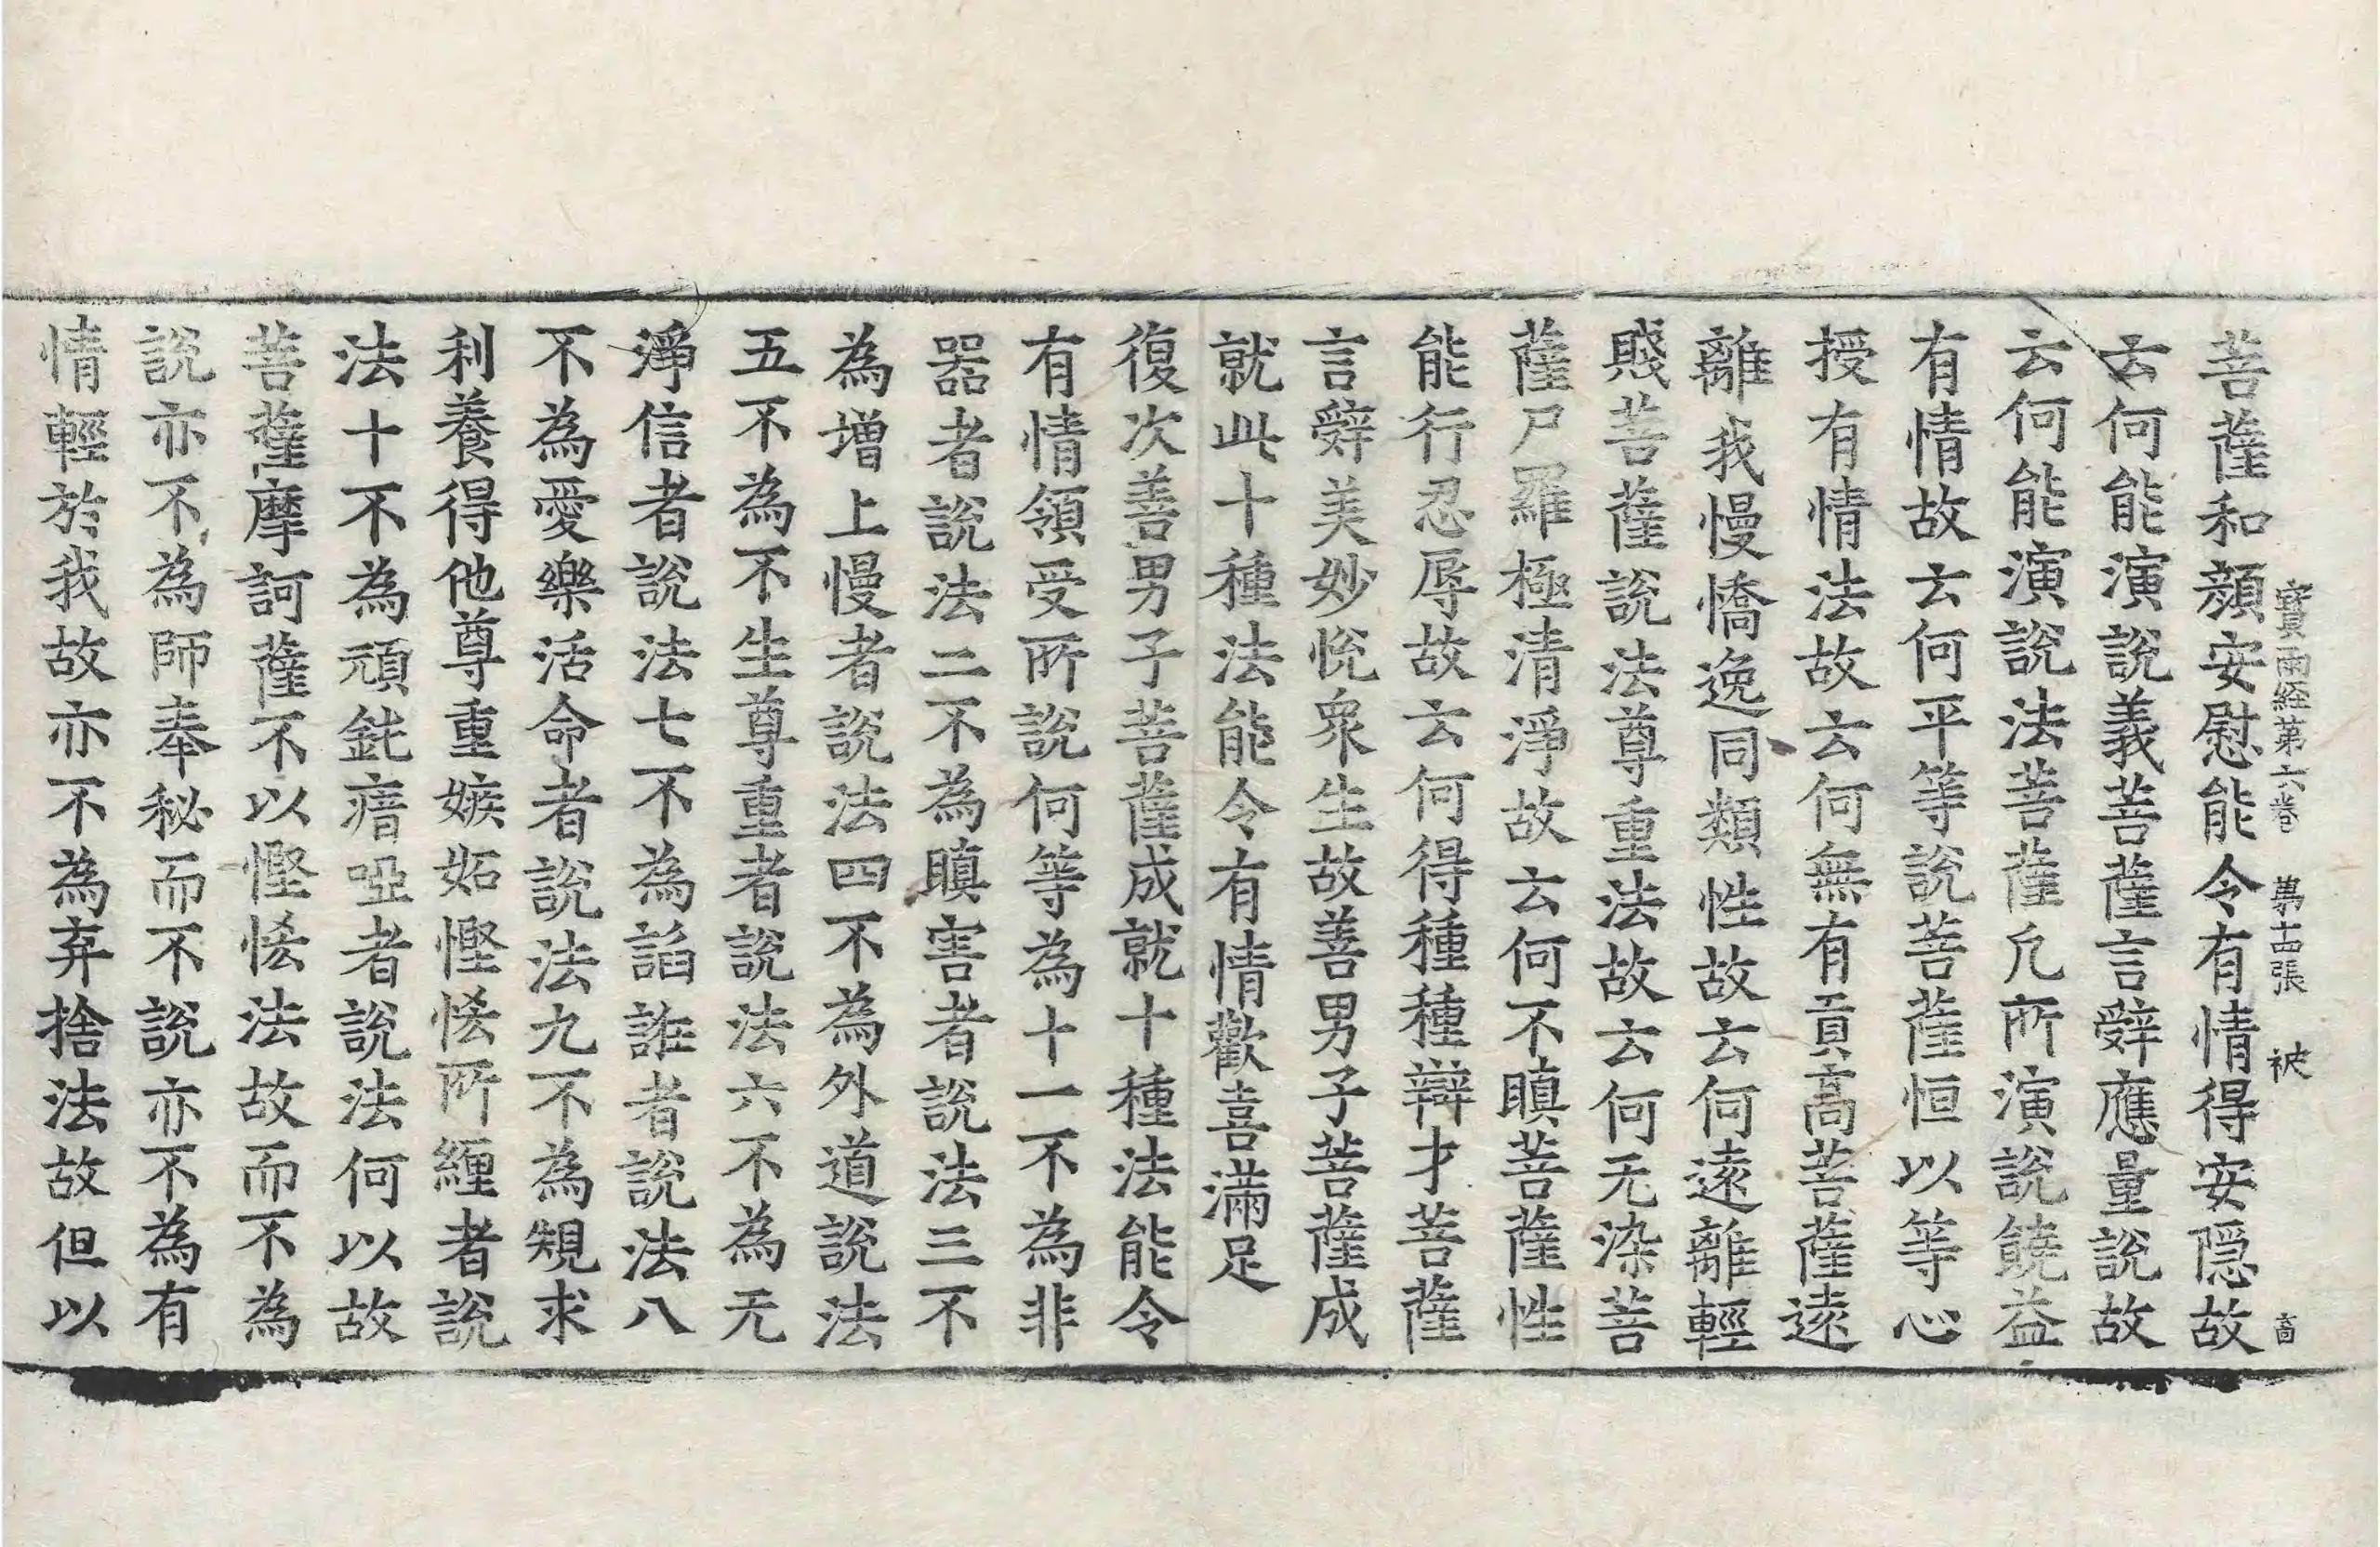 寶雨経第六卷 第十四張 被
菩薩和顔安慰能令有情得安隠故
云何能演說義菩薩言辝應量說故
云何能演說法菩薩凡所演說饒益
有情故云何平等說菩薩恒以等心
授有情法故云何無有貢高菩薩逺
離我慢憍逸同類性故云何逺離輕
賤菩薩說法尊重法故云何无染菩
薩尸羅極清淨故云何不瞋菩薩性
能行忍辱故云何得種種辯才菩薩
言辝美妙悅衆生故善男子菩薩成
就此十種法能令有情歡喜滿足
復次善男子菩薩成就十種法能令
有情領受所說何等為十一不為非
器者說法二不為瞋害者說法三不
為増上慢者說法四不為外道說法
五不為不生尊重者說法六不為无
淨信者說法七不為諂誑者說法八
不為愛樂活命者說法九不為䂓求
利養得他尊重嫉妬慳悋所纒者說
法十不為頑鈍瘖啞者說法何以故
菩薩摩訶薩不以慳悋法故而不為
說亦不為師奉秘而不說亦不為有
情輕於我故亦不為弃捨法故但以